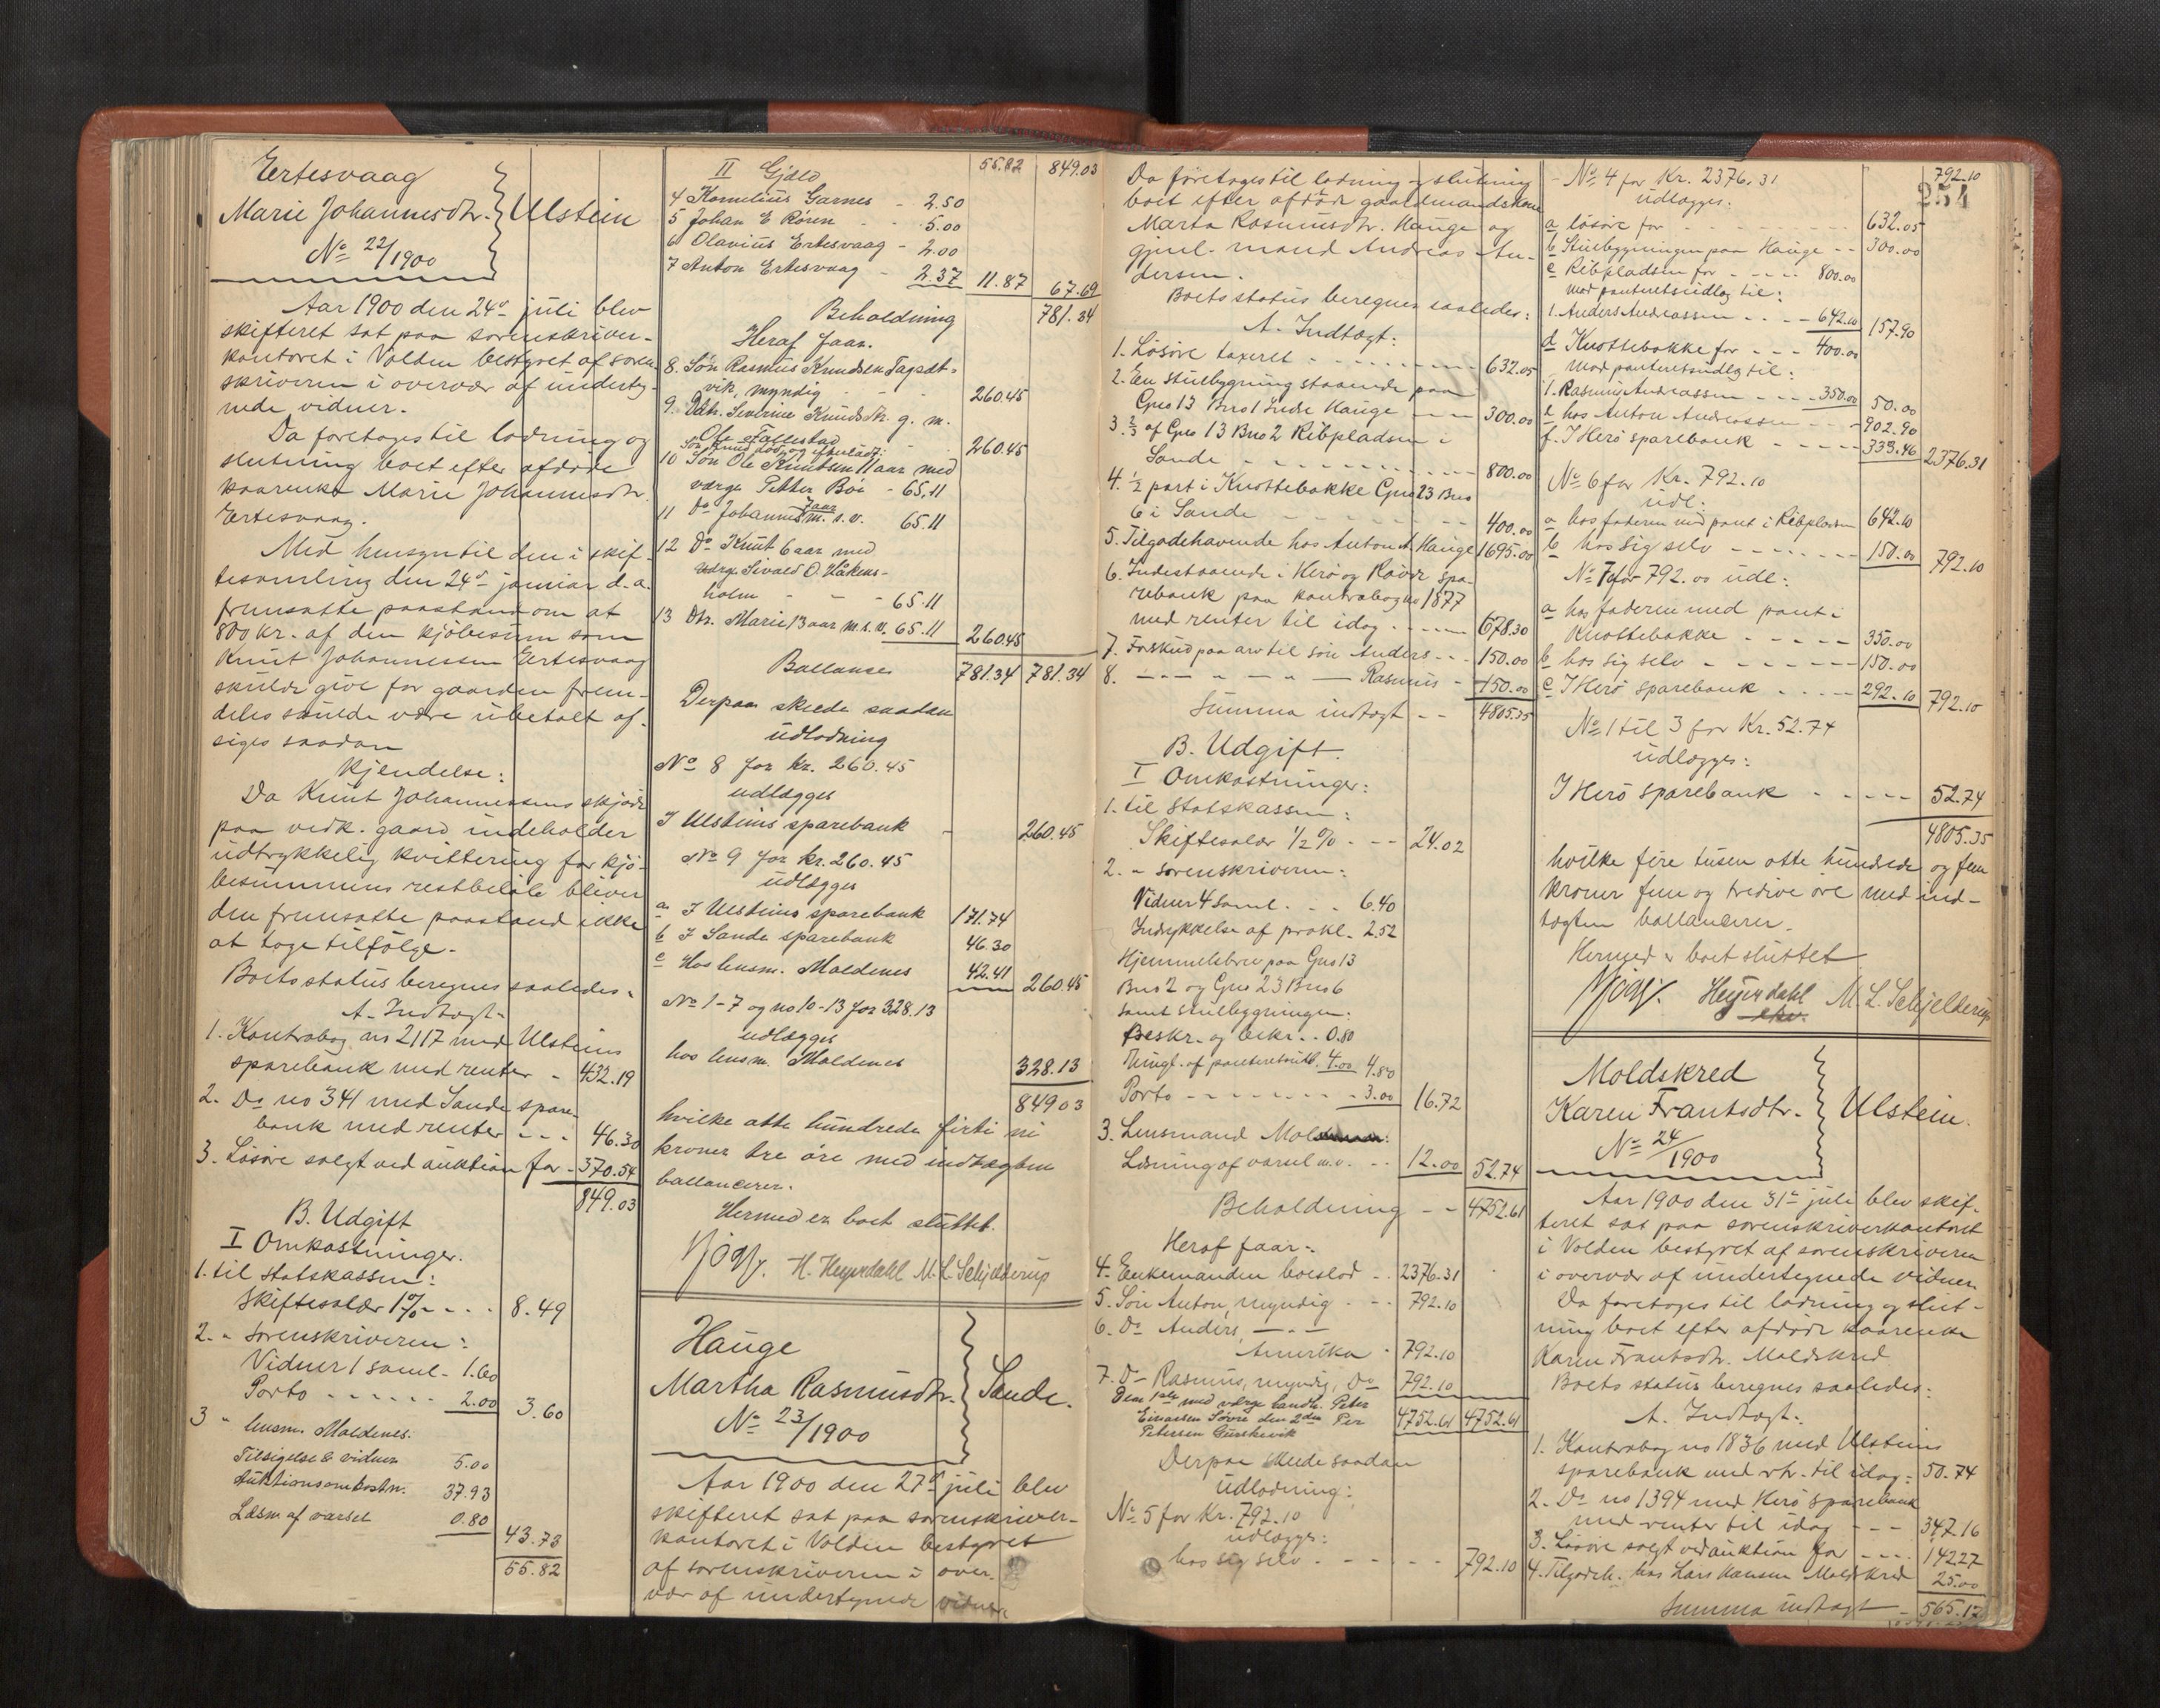 Ertesvaag
Marie Johannesdtr. Ulstein
No 22/1900
Aar 1900 den 24de juli blev
skifteret sat paa sorenskriver-
kontoret i Volden bestyret af soren-
skriveren i overvær af underteg-
nede vidner.
Da foretoges til lodning og
slutning boet efter afdøde
kaarenke Marie Johannesdtr.
Ertesvaag.
Med hensyn til den i skif-
tesamling den 24de januar d. a.
fremsatte paastand om at
800 kr. af den kjøbesum som
Knut Johannessen Ertesvaag
skulde give for gaarden frem-
deles skulde være ubetalt af-
siges saadan
Kjendelse:
Da Knut Johannessens skjøde
paa vedk. gaard indeholder
udtrykkelig kvittering for kjø-
besummens restbeløb bliver
den fremsatte paastand ikke
at tage tilfølge.
Boets status beregnes saaledes.
A. Indtægt.
1. Kontrabog no 2117 med Ulsteins
sparebank med renter - 432.19
2. Do no 341 med Sande spare-
bank med renter - - - 46.30
3. Løsøre solgt ved auktion for - 370.54
849.03
B. Udgift
I Omkostninger.
1. til statskassen:
Skiftesalær 1% - - - 8.49
2. " sorenskriveren:
Vidner 1 saml. - 1.60
Porto - - - - - 2.00 3.60
3 " lensm. Moldenes.
Tilsigelse & vidner 5.00
Auktionsomkostn. 37.93
Læsn. af varsel 0.80
43.73
55.82
II Gjæld 55.82 849.03
4 Kornelius Garnes - 2.50
5 Johan E Røren - 5.00
6 Olavius Ertesvaag - 2.00
7 Anton Ertesvaag - 2.37 11.87 67.69
Beholdning 781.34
Heraf faar.
8. Søn Rasmus Knudsen
vik, myndig - - - 260.45
9. Dtr. Severine Knudsdtr. g. m.
Ole Fallestad 260.45
Søn Knut død og efterladt:
10 Søn Ole Knutsen 11 aar med
værge Petter Bøe - 65.11
11 Do Johannes aar m. s. v. 65.11
12 Do Knut 6 aar med
værge Sivald O. Håkens-
holm - - - 65.11
13 Dtr. Marie 13 aar m. s. v. 65.11 260.45
Ballanse 781.34 781.34
Derpaa skede saadan
udlodning
No 8 for kr. 260.45
udlægges
I Ulsteins sparebank - 260.45
No 9 for kr. 260.45
udlægges
a I Ulsteins sparebank 171.74
b I Sande sparebank 46.30
c Hos lensm. Moldenes 42.41 260.45
No 1-7 og no 10-13 for 328.13
udlægges
hos lensm. Moldenes 328.13
849.03
hvilke otte hundrede firti ni
kroner tre øre med indtægten
ballancerer.
Hermed er boet sluttet.
H. Heyerdahl M. L. Schjelderup
Hauge
Martha Rasmusdtr. Sande.
No 23/1900
Aar 1900 den 27de juli blev
skifteret sat paa sorenskriver-
kontoret i Volden bestyret
af sorenskriveren i over-
vær af undertegnede vidner.
Da foretoges til lodning og slutning
boet efter afdøde gaardmandskone
Marta Rasmusdtr. Hauge og
gjenl. mand Andreas An-
dersen.
Boets status beregnes saaledes:
A. Indtægt:
1. Løsøre taxeret - - - - - 632.05
2. En stuebygning staaende paa
Gno 13 Bno 1 Indre Hauge - - - 300.00
3. 2/3 af Gno 13 Bno 2 Ribpladsen i
Sande - - - - - 800.00
4. 1/2 part i Knottebakke Gno 23 Bno
6 i Sande - - - - - 400.00
5. Tilgodehavende hos Anton A. Hauge 1695.00
6. Indestaaende i Herø og Røvde spa-
rebank paa kontrabog no 1877
med renter til idag - - - - 678.30
7. Forskud paa arv til søn Anders - - - 150.00
8. - - " - " - Rasmus - 150.00
Summa indtægt - - 4805.35
B. Udgift.
I Omkostninger:
1. til statskassen:
Skiftesalær 1/2 % - - - 24.02
2. " sorenskriveren:
Vidner 4 saml. - - 6.40
Indrykkelse af prokl. 2.52
Hjemmelsbrev paa Gno 13
Bno 2 og Gno 23 Bno 6
samt stuebygningen:
Beskr. og bekr. - 0.80
Thingl. af panteretsudl. 4.00 4.80
Porto - - - - - 3.00 16.72
3. Lensmand
Læsning af varsel m. v. - - 12.00 52.74
Beholdning - - 4752.61
Heraf faar:
4. Enkemanden boeslod - - 2376.31
5. Søn Anton, myndig - - - 792.10
6. Do Anders, - " -
Amerika - 792.10
7. Do Rasmus, myndig, Do 792.10
Den 1ste med værge landh. Peter
Einarsen Sørre den 2den Per
Petersen Gurskevik 4752.61 4752.61
Derpaa skede saadan
udlodning:
No 5 for Kr. 792.10
udlægges:
hos sig selv - - - - - 792.10
792.10
254
No 4 for Kr. 2376.31
udlægges:
a løsøre for - - - - - 632.05
b Stuebygningen paa Hauge - - 300.00
c Ribpladsen for - - - - 800.00
mod panteretsudlæg til:
1. Anders Andreassen - - - 642.10 157.90
d Knottebakke for - - - 400.00
Mod panteretsudlæg til:
1. Rasmus Andreassen - - - 350.00 50.00
e hos Anton Andreassen - - - 902.90
f. I Herø sparebank - - - - 333.46 2376.31
No 6 for Kr. 792.10
udl.
a hos faderen med pant i Ribpladsen 642.10
b hos sig selv - - - - - 150.00 792.10
No 7 for 792.10 udl:
a hos faderen med pant i
Knottebakke - - - - 350.00
b hos sig selv - - - - - 150.00
c I Herø sparebank - - - - 292.10 792.10
No 1 til 3 for Kr. 52.74
udlægges:
I Herø sparebank - - - - - 52.74
4805.35
hvilke fire tusen otte hundrede og fem
kroner fem og tredive øre med ind-
tægten ballancerer.
Hermed er boet sluttet
Heyerdahl M. L. Schjelderup
Moldskred
Karen Frantsdtr. Ulstein.
No 24/1900
Aar 1900 den 31te juli blev skif-
teret sat paa sorenskriverkontoret
i Volden bestyret af sorenskriveren
i overvær af undertegnede vidner.
Da foretoges til lodning og slut-
ning boet efter afdøde kaarenke
Karen Frantsdtr. Moldskred.
Boets status beregnes saaledes:
A. Indtægt:
1. Kontrabog no 1836 med Ulsteins
sparebank med rtr. til idag: 50.74
2. Do no 1394 med Herø sparebank
med renter til idag - - - 347.16
3. Løsøre solgt ved auktion for - - - 142.27
4. Tilgodeh. hos Lars Hansen Moldskred 25.00
Summa indtægt - 565.17